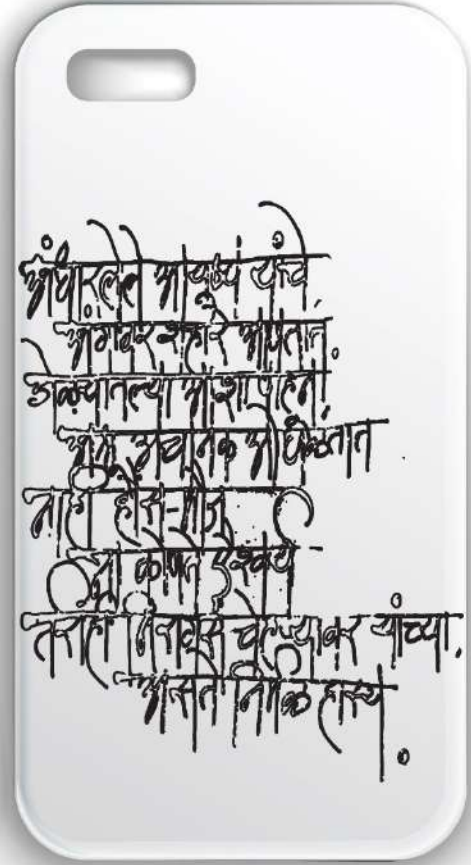 अंधारलेले आयुष्य यांचे,
अंगावर शहारे आणतात.
डोळ्यातल्या आशा पाहता,
अश्रू अचानक ओघळतात
नाही हौस-मौज
ना कोणते ऐश्वर्य
तरीही निरागस चेहऱ्यावर यांच्या.
असते निर्मळ हास्य.